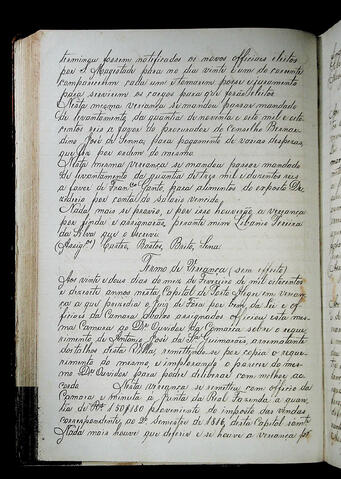 terminou fossem notificados os novos officiais eleitos
por S. Magestade para no dia vinte e um do corrente
comparecerem cada um e tomarem posse e juramento
para servirem os cargos para que forão eleitos
Nesta mesma vereança se mandou passar mandado
de levantamento da quantia de noventa e oito mil e oito
centos reis a favor do procurador do Conselho Bernar
dino José de Senna, para pagamento de varias despezas
que fez por ordem do mesmo
Nesta mesma vereança se mandou passar mandado
de levantamento da quantia de treze mil e duzentos reis
a favor de Franco para alimentos do exposto De
por conta do salario vencido,
Nada mais se proveo, e por isso houverão a vereança
por finda e assignarão perante mim Libanio Pereira
da Silva que o escrevi
(Assigos) Castro, Bastos, Brito, Lima
Termo de Vereança (sem effeito)
Aos vinte e dous dias do mez de Fevereiro de mil oitocentos
e dezoito annos nesta Capital de Porto Alegre em verean
ça a que prezedio o Juiz de Fora por bem da Lei e of
ficiais da Camara abaixo assignados officiou esta mes
ma Camara ao Dr Ouvidor da Comarca sobre o reque
rimento de Antonio José da Sa Guimarães, arrematante
dos talhos desta Villa, remettendo-se por copia o reque
rimento do mesmo, e implorando o parecer do mes
mo Dr Ouvidor para poder deliberar com melhor ac
cordo Nesta vereança se remetteu com officio da
Camara e minuta á Junta da Real Fazenda a quan
tia de Rs 150$180 proveniente do imposto das vendas
correspondente, ao 2o Semestre de 1816, desta Capital somte
Nada mais houve que deferir e se houve a vereança por